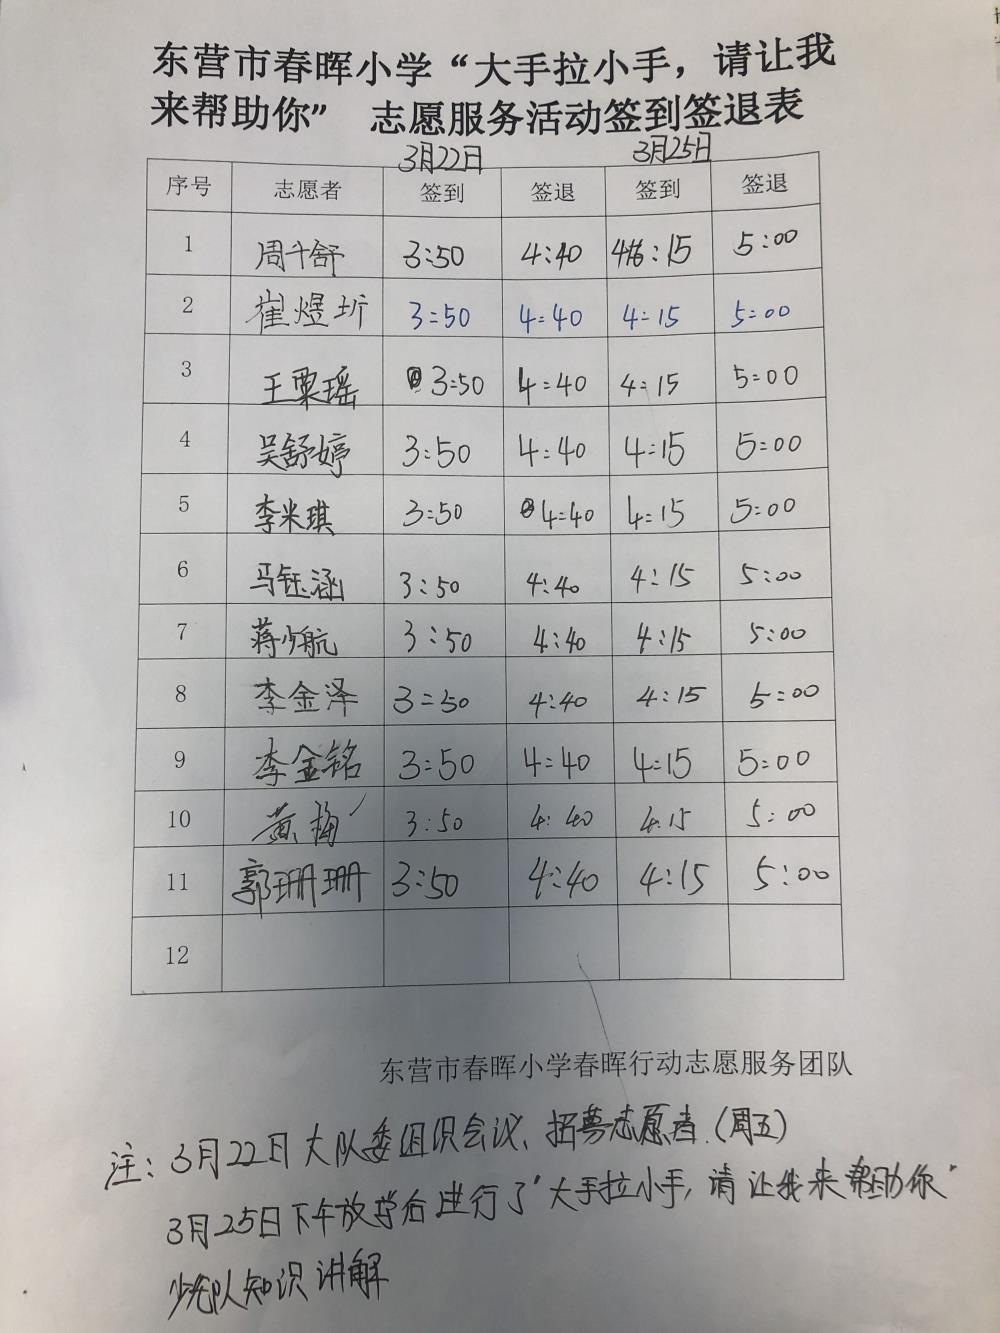 东营市春晖小学“大手拉小手，请让我
来帮助你” 志愿服务活动签到签退表
3月22日 3月25日
序号 志愿者 签到 签退 签到 签退
1 周千舒 3:50 4:40 4:15 5:00
2 崔煜圻 3:50 4:40 4:15 5:00
3 王粟瑶 3:50 4:40 4:15 5:00
4 吴舒婷 3:50 4:40 4:15 5:00
5 李米琪 3:50 4:40 4:15 5:00
6 马钰涵 3:50 4:40 4:15 5:00
7 蒋少航 3:50 4:40 4:15 5:00
8 李金泽 3=50 4:40 4:15 5:00
9 李金铭 3:50 4:40 4:15 5:00
10 黄梅 3:50 4:40 4:15 5:00
11 郭珊珊 3:50 4:40 4:15 5:00
12
东营市春晖小学春晖行动志愿服务团队
注：3月22日大队委组织会议、招募志愿者.（周五）
3月25日下午放学后进行了“大手拉小手，请让我来帮助你”
少先队知识讲解